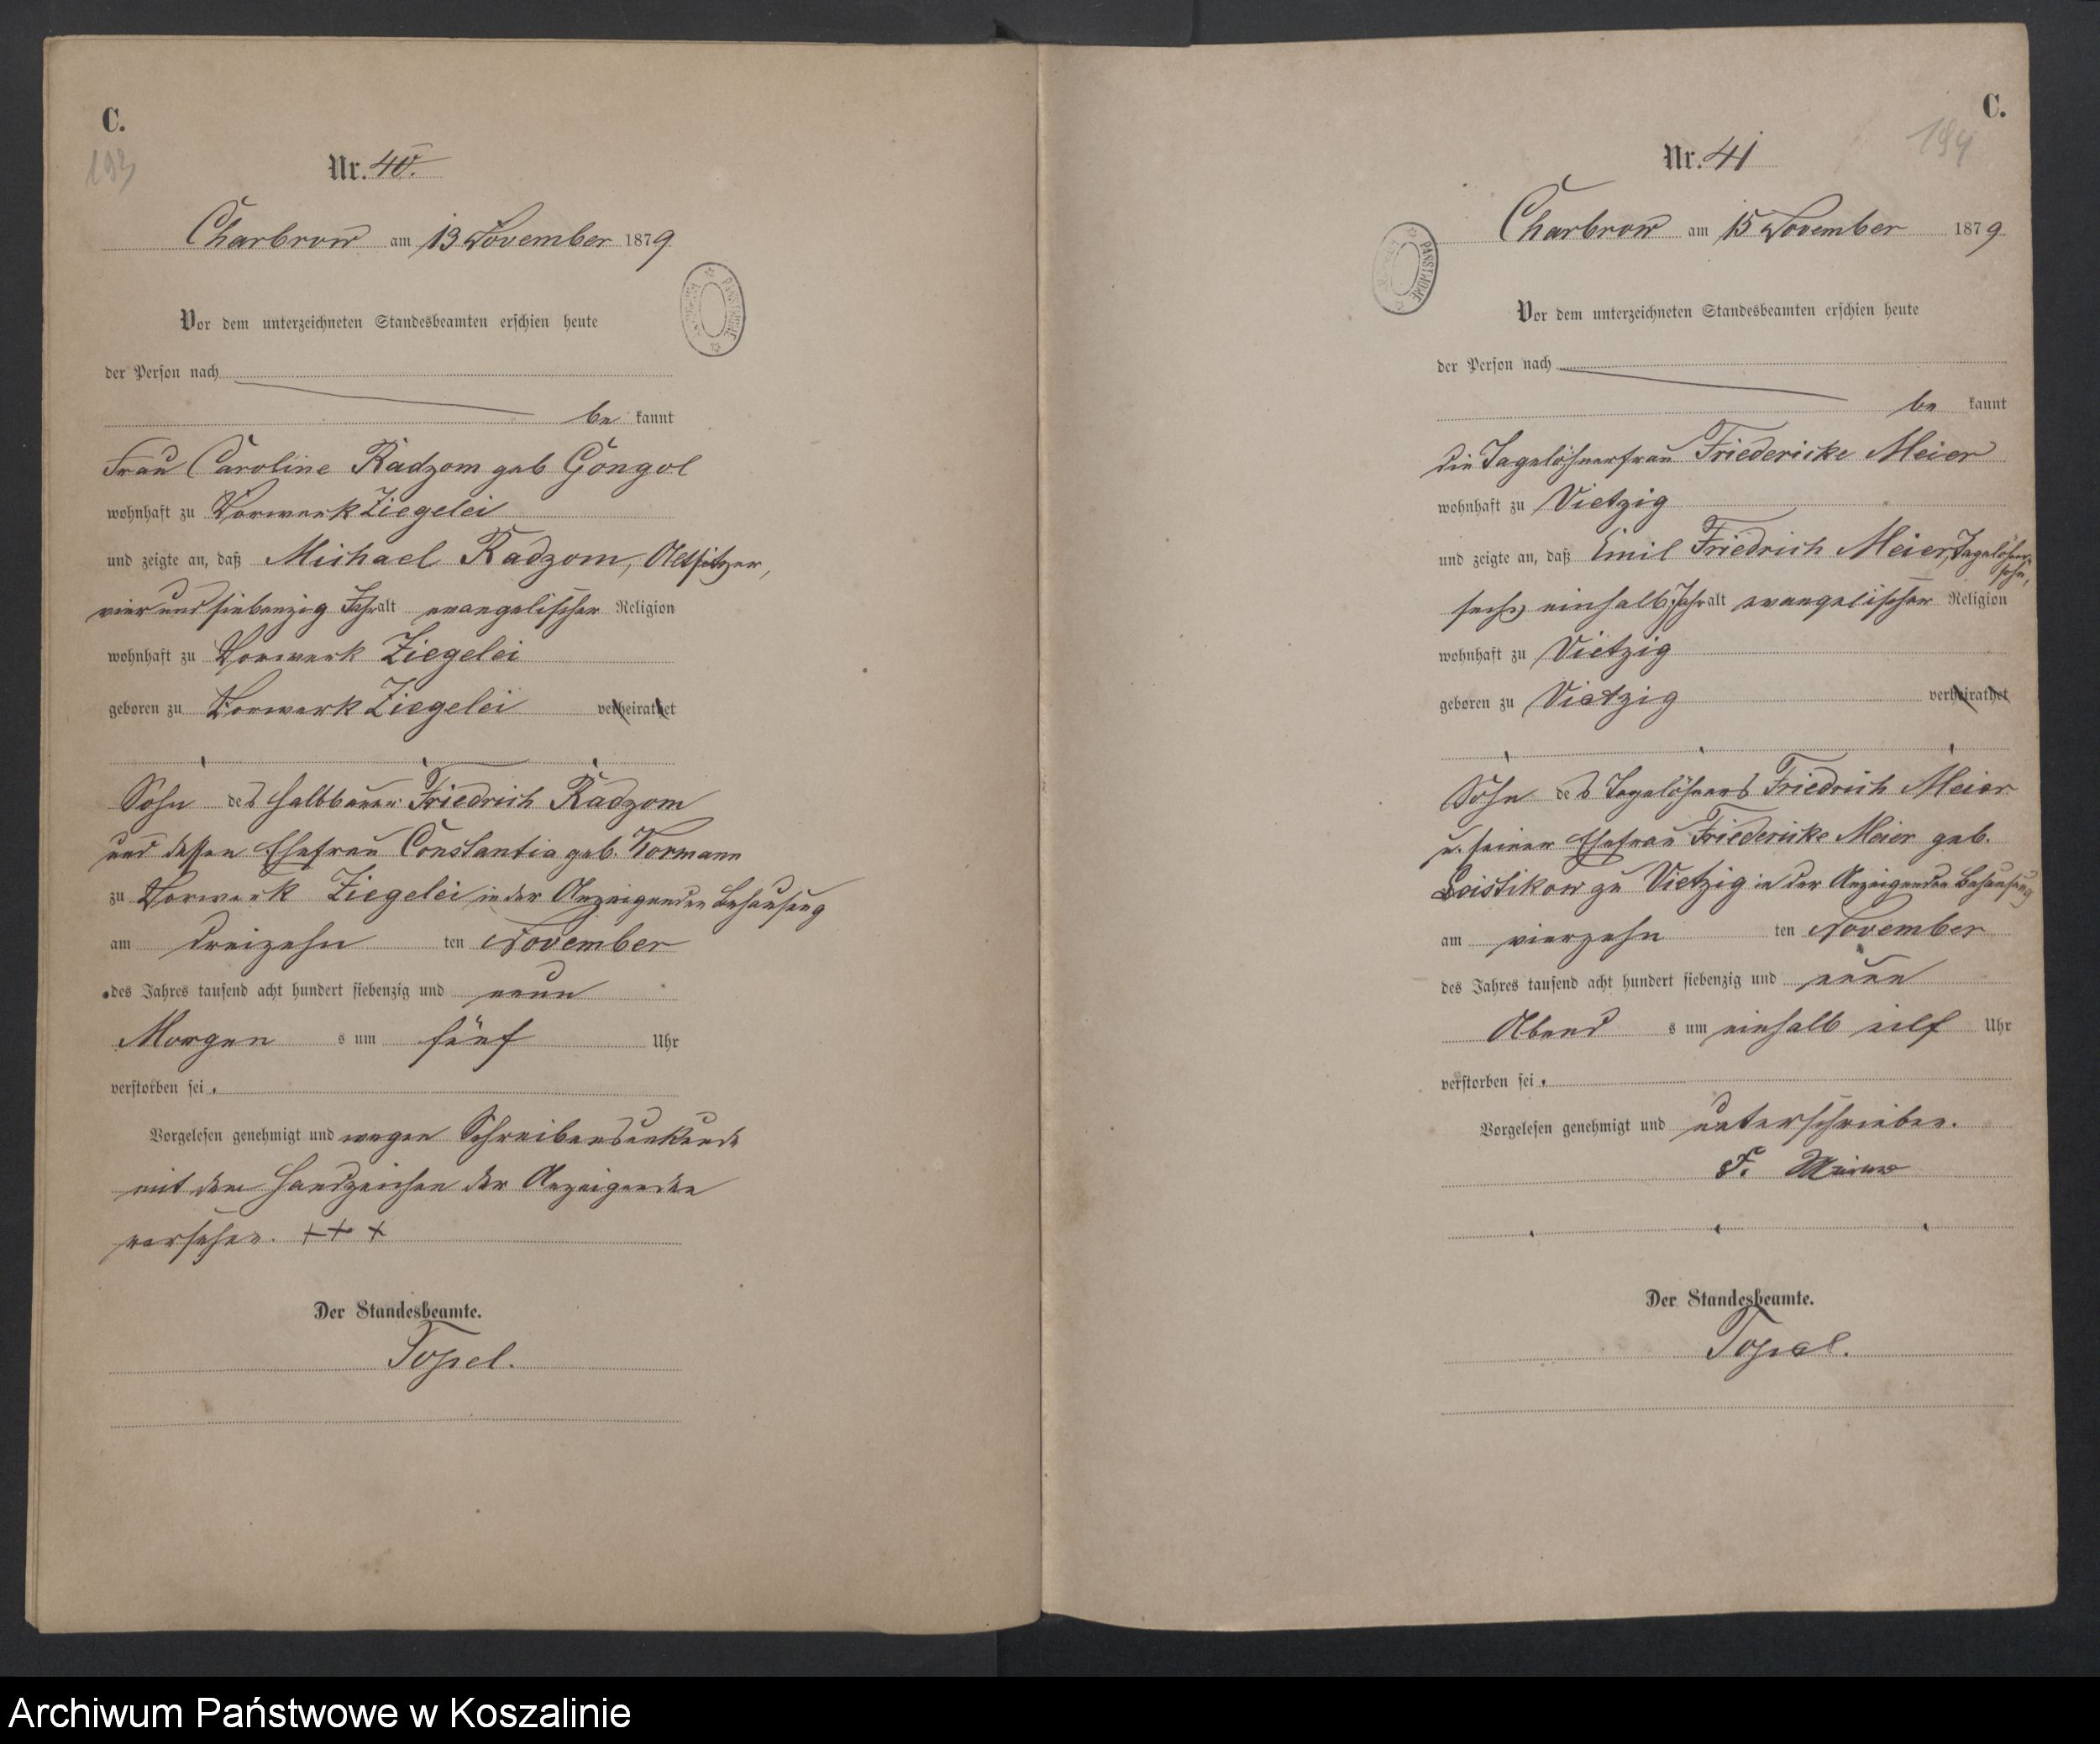 C.
193
Nr. 40.
Charbrow am 13 November 1879
PAŃSTWOWE
Vor dem unterzeichneten Standesbeamten erschien heute
der Person nach
be kannt
Frau Caroline Radzom geb Gongol
wohnhaft zu Vorwerk Ziegelei
und zeigte an, daß Michael Radzom, Altsitzer,
vier und siebenzig Jahr alt evangelischer Religion
wohnhaft zu Vorwerk Ziegelei
geboren zu Vorwerk Ziegelei verheirathet
Sohn des Halbbauern Friedrich Radzom
und dessen Ehefrau Constantia geb. Kormann
zu Vorwerk Ziegelei in der Anzeigenden Behausung
am dreizehn ten November
des Jahres tausend acht hundert siebenzig und neun
Morgen s um fünf Uhr
verstorben sei.
Vorgelesen genehmigt und wegen Schreibensunkunde
mit dem Handzeichen der Anzeigenden
versehen. +++
Der Standesbeamte.
Topel.
C.
194
Nr. 41
Charbrow am 15 November 1879
PAŃSTWOWE
Vor dem unterzeichneten Standesbeamten erschien heute
der Person nach
be kannt
die Tagelöhnerfrau Friedericke Meier
wohnhaft zu Vietzig
und zeigte an, daß Emil Friedrich Meier, Tagelöhner
sohn,
sechs einhalb Jahr alt evangelischer Religion
wohnhaft zu Vietzig
geboren zu Vietzig verheirathet
Sohn des Tagelöhners Friedrich Meier
u. seiner Ehefrau Friedericke Meier geb.
Loistikow zu Vietzig in der Anzeigenden Behausung
am vierzehn ten November
des Jahres tausend acht hundert siebenzig und neun
Abend s um einhalb eilf Uhr
verstorben sei.
Vorgelesen genehmigt und unterschrieben.
F.
Der Standesbeamte.
Topel.
Archiwum Państwowe w Koszalinie